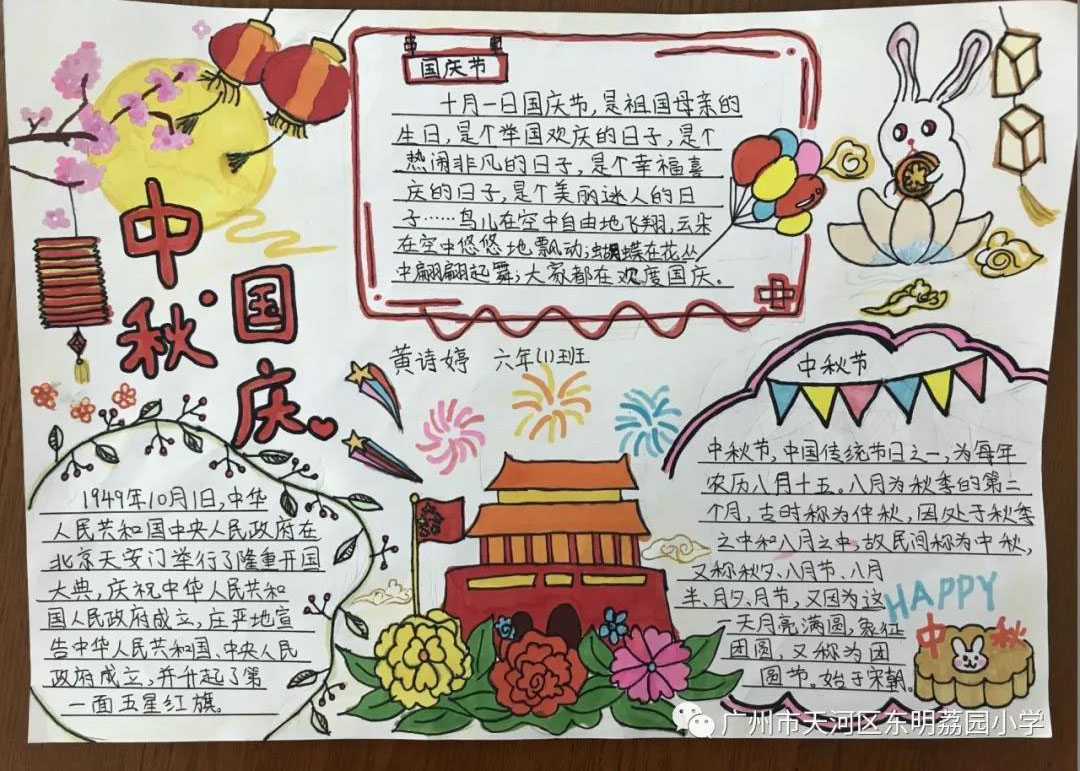 中秋·国庆
国庆节
十月一日国庆节，是祖国母亲的
生日，是个举国欢庆的日子，是个
热闹非凡的日子，是个幸福喜
庆的日子，是个美丽迷人的日
子……鸟儿在空中自由地飞翔，云朵
在空中悠悠地飘动，蝴蝶在花丛
中翩翩起舞，大家都在欢度国庆。
黄诗婷 六年(1)班
1949年10月1日，中华
人民共和国中央人民政府在
北京天安门举行了隆重开国
大典，庆祝中华人民共和
国人民政府成立，庄严地宣
告中华人民共和国、中央人民
政府成立，并升起了第
一面五星红旗。
中秋节
中秋节，中国传统节日之一，为每年
农历八月十五。八月为秋季的第二
个月，古时称为仲秋，因处于秋季
之中和八月之中，故民间称为中秋，
又称秋夕、八月节、八月
半、月夕、月节，又因为这
一天月亮满圆，象征
团圆，又称为团
圆节。始于宋朝。
HAPPY
中秋
广州市天河区东明荔园小学